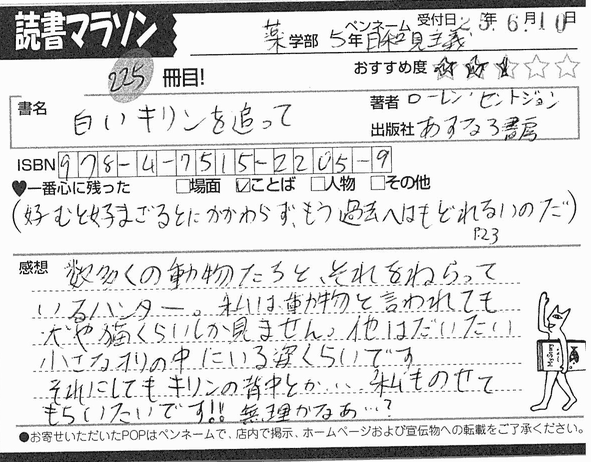 読書マラソン
ペンネーム 受付日 25年6月10日
薬学部 5年 日和見主義
225冊目!
おすすめ度
書名 白いキリンを追って
著者 ローレン・セントジョン
出版社 あすなろ書房
ISBN 978-4-7515-2205-9
♥一番心に残った □場面 ☑ことば □人物 □その他
(好むと好まざるとにかかわらず、もう過去へはもどれないのだ)
P23
感想
数多くの動物たちと、それをねらって
いるハンター。私は動物と言われても
犬や猫くらいしか見ません。他はだいたい
小さなオリの中にいる姿くらいです
それにしてもキリンの背中とか.... 私ものせて
もらいたいです!! 無理かなあ…?
●お寄せいただいたPOPはペンネームで、店内で掲示、ホームページおよび宣伝物への転載をご了承ください。